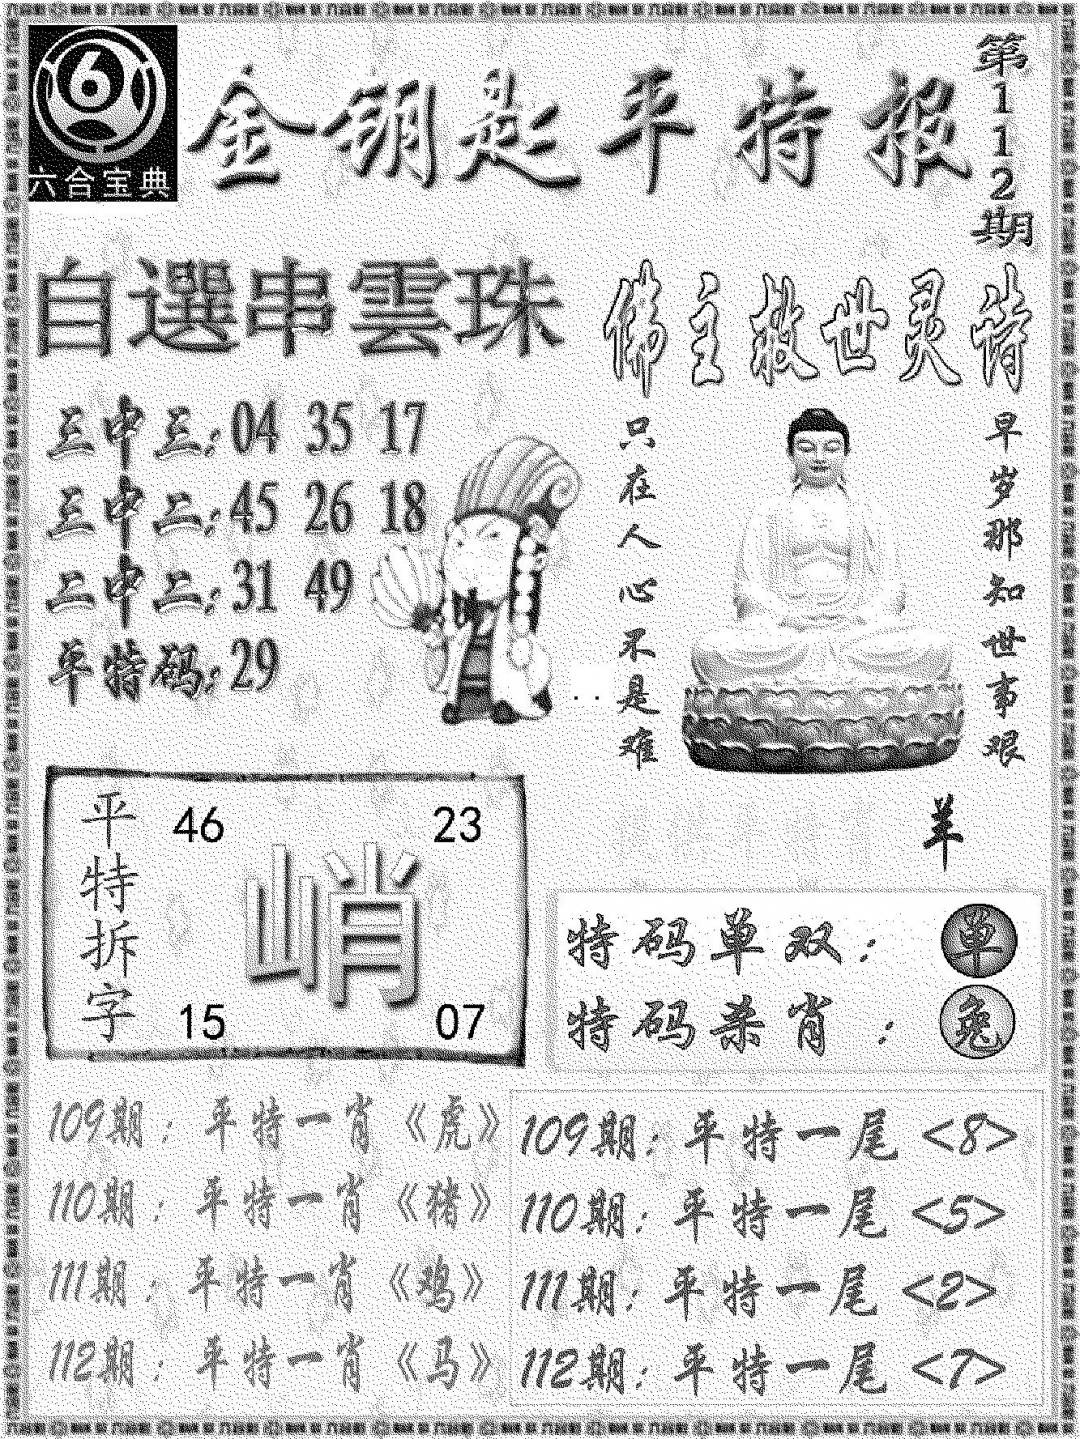 六合宝典
金钥匙平特报
第112期
自選串雲珠
三中三:04 35 17
三中二:45 26 18
二中二:31 49
平特码:29
佛主救世灵诗
早岁那知世事艰
只在人心不是难
羊
平特拆字
46 23
峭
15 07
特码单双:单
特码杀肖:兔
109期:平特一肖《虎》
110期:平特一肖《猪》
111期:平特一肖《鸡》
112期:平特一肖《马》
109期:平特一尾<8>
110期:平特一尾<5>
111期:平特一尾<2>
112期:平特一尾<7>